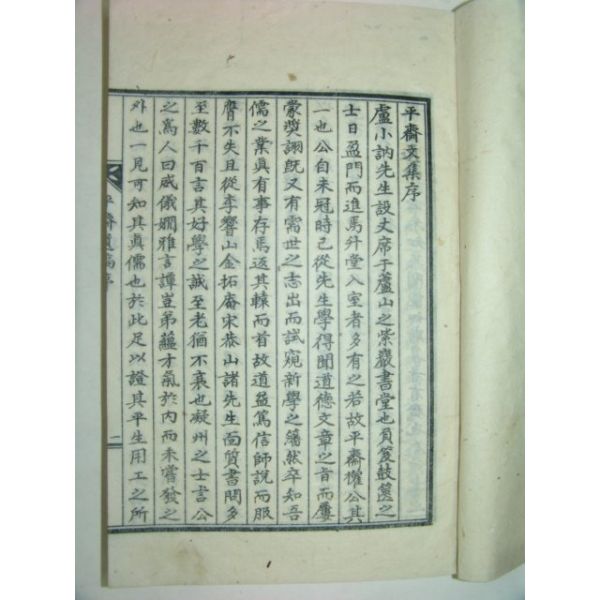 平齋文集序
盧小訥先生設丈席于蘆山之紫巖書堂也負笈鼓篋之
士日盈門而進焉升堂入室者多有之若故平齋權公其
一也公自未冠時已從先生學得聞道德文章之旨而屢
蒙獎詡旣又有需世之志出而試窺新學之藩然卒知吾
儒之業眞有事存焉返其轅而首故道益篤信師說而服
膺不失且從李響山金拓庵宋恭山諸先生面質書問多
至數千百言其好學之誠至老猶不衰也凝州之士言公
之爲人曰威儀嫺雅言譚豈弟蘊才氣於內而未嘗發之
外也一見可知其眞儒也於此足以證其平生用工之所
平齋遺稿序
一